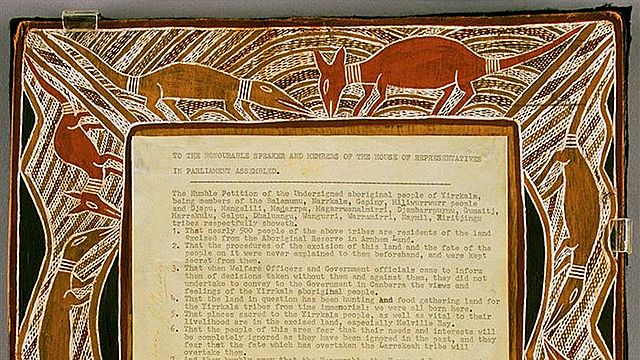 TO THE HONOURABLE SPEAKER AND MEMBERS OF THE HOUSE OF REPRESENTATIVES
IN PARLIAMENT ASSEMBLED.
The Humble Petition of the Undersigned aboriginal people of Yirrkala,
being members of the Balamumu, Narrkala, Gapiny, Miliwurrwurr people
and Djapu, Mangalili, Madarrpa, Magarrwanalmirri, Djambarrpuynu, Gumaitj,
Marrakulu, Galpu, Dhaluangu, Wangurri, Warramirri, Naymil, Riritjingu
tribes respectfully showeth.
1. That nearly 500 people of the above tribes are residents of the land
excised from the Aboriginal Reserve in Arnhem Land.
2. That the procedures of the excision of this land and the fate of the
people on it were never explained to them beforehand, and were kept
secret from them.
3. That when Welfare Officers and Government officials came to inform
them of decisions taken without them and against them, they did not
undertake to convey to the Government in Canberra the views and
feelings of the Yirrkala aboriginal people.
4. That the land in question has been hunting and food gathering land for
the Yirrkala tribes from time immemorial; we were all born here.
5. That places sacred to the Yirrkala people, as well as vital to their
livelihood are in the excised land, especially Melville Bay.
6. That the people of this area fear that their needs and interests will
be completely ignored as they have been ignored in the past, and they
fear that the fate which has overtaken the Larrakeah tribe will
overtake them.